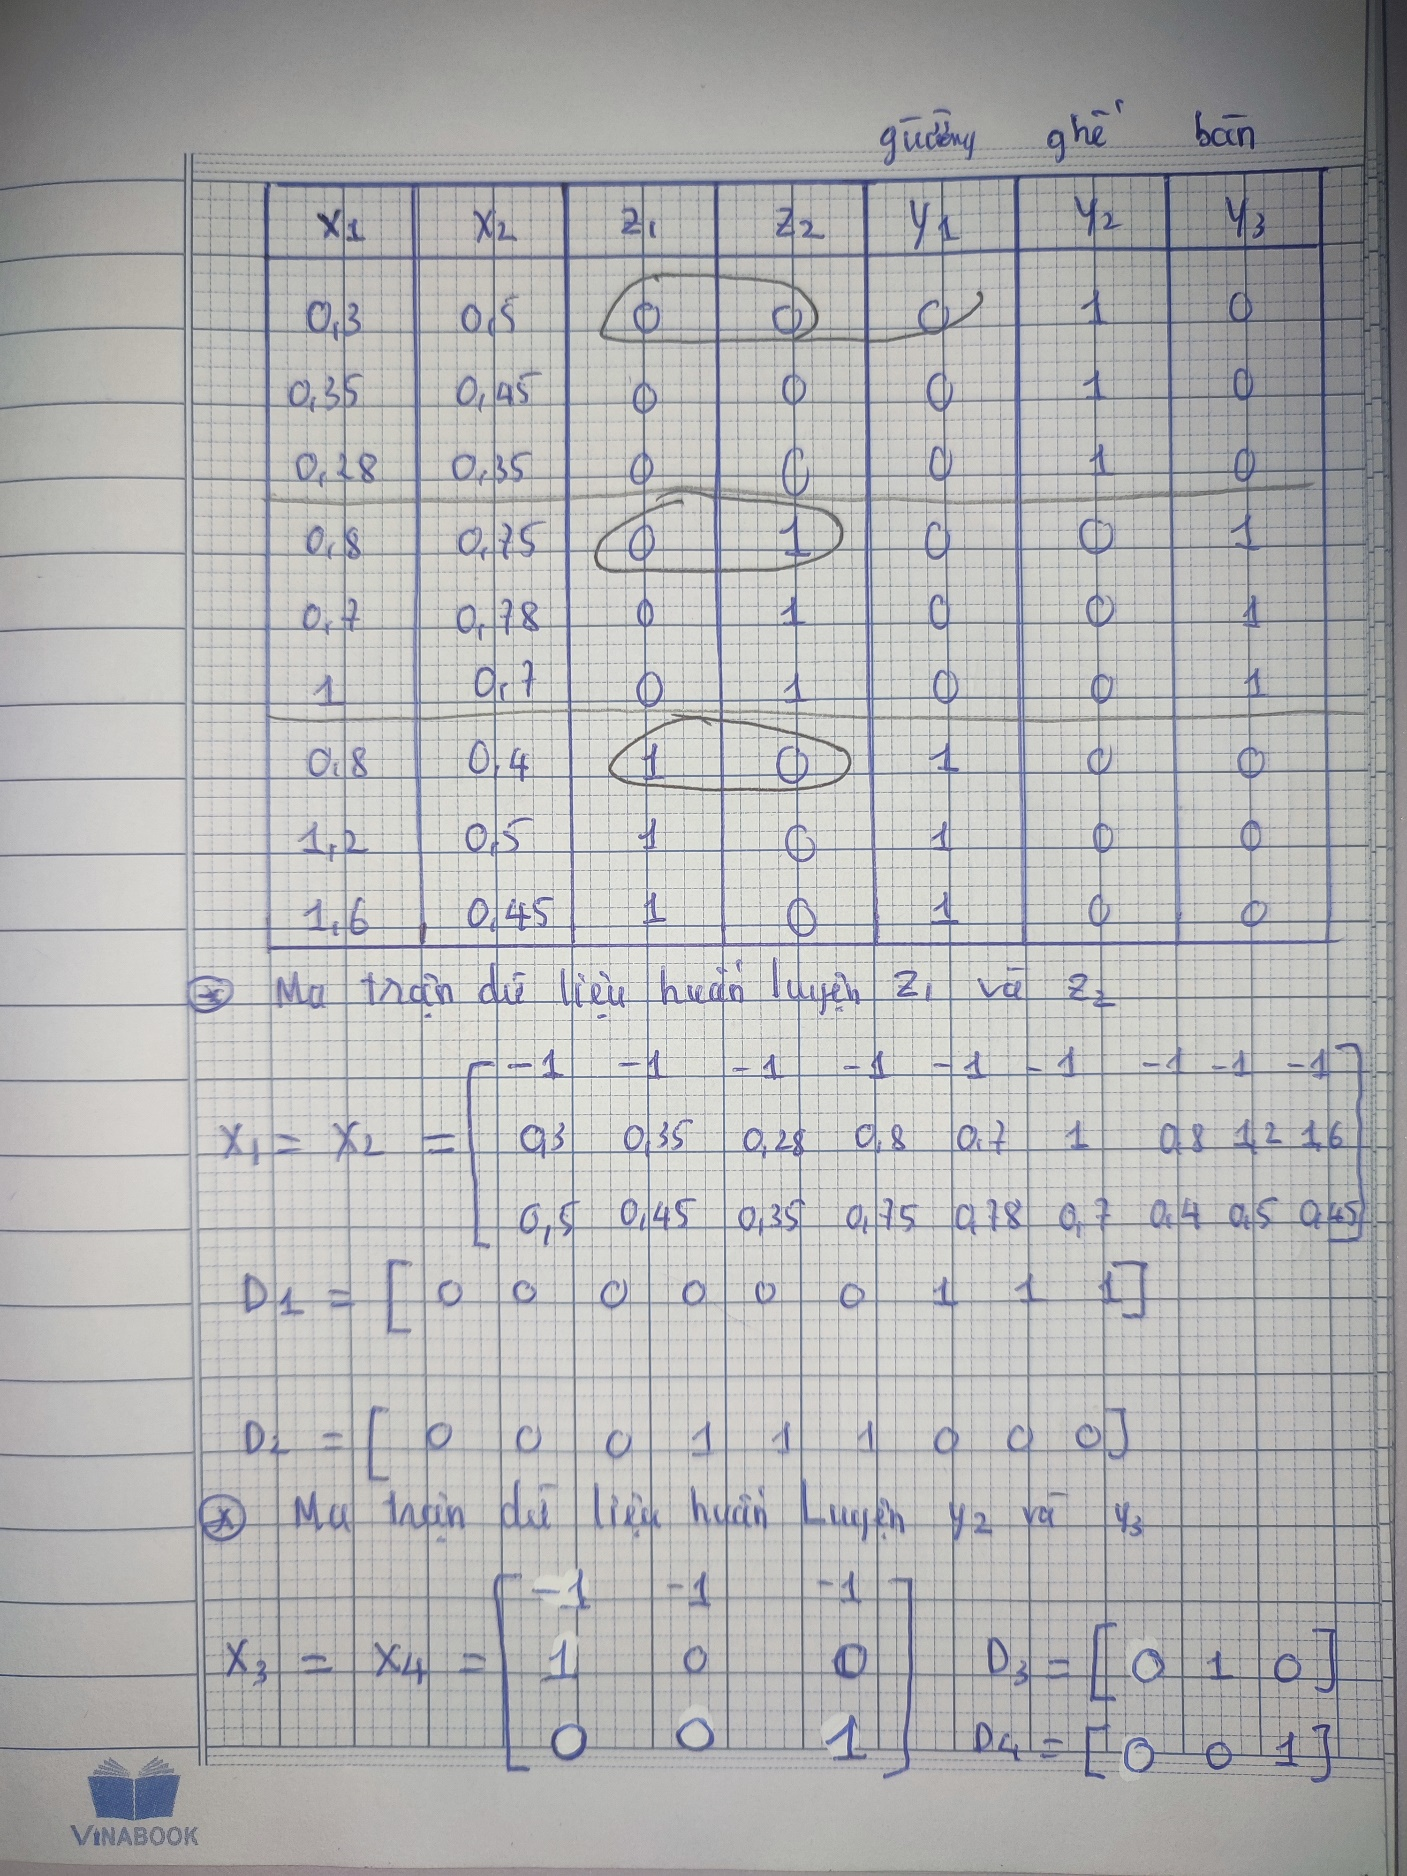 giường ghế bàn
x1 x2 z1 z2 y1 y2 y3
0,3 0,5 0 0 0 1 0
0,35 0,45 0 0 0 1 0
0,28 0,35 0 0 0 1 0
0,8 0,75 0 1 0 0 1
0,7 0,78 0 1 0 0 1
1 0,7 0 1 0 0 1
0,8 0,4 1 0 1 0 0
1,2 0,5 1 0 1 0 0
1,6 0,45 1 0 1 0 0
* Ma trận dữ liệu huấn luyện z1 và z2
X1 = X2 = [ -1 -1 -1 -1 -1 -1 -1 -1 -1
0,3 0,35 0,28 0,8 0,7 1 0,8 1,2 1,6
0,5 0,45 0,35 0,75 0,78 0,7 0,4 0,5 0,45 ]
D1 = [ 0 0 0 0 0 0 1 1 1 ]
D2 = [ 0 0 0 1 1 1 0 0 0 ]
* Ma trận dữ liệu huấn Luyện y2 và y3
X3 = X4 = [ -1 -1 -1
1 0 0
0 0 1 ]
D3 = [ 0 1 0 ]
D4 = [ 0 0 1 ]
VINABOOK